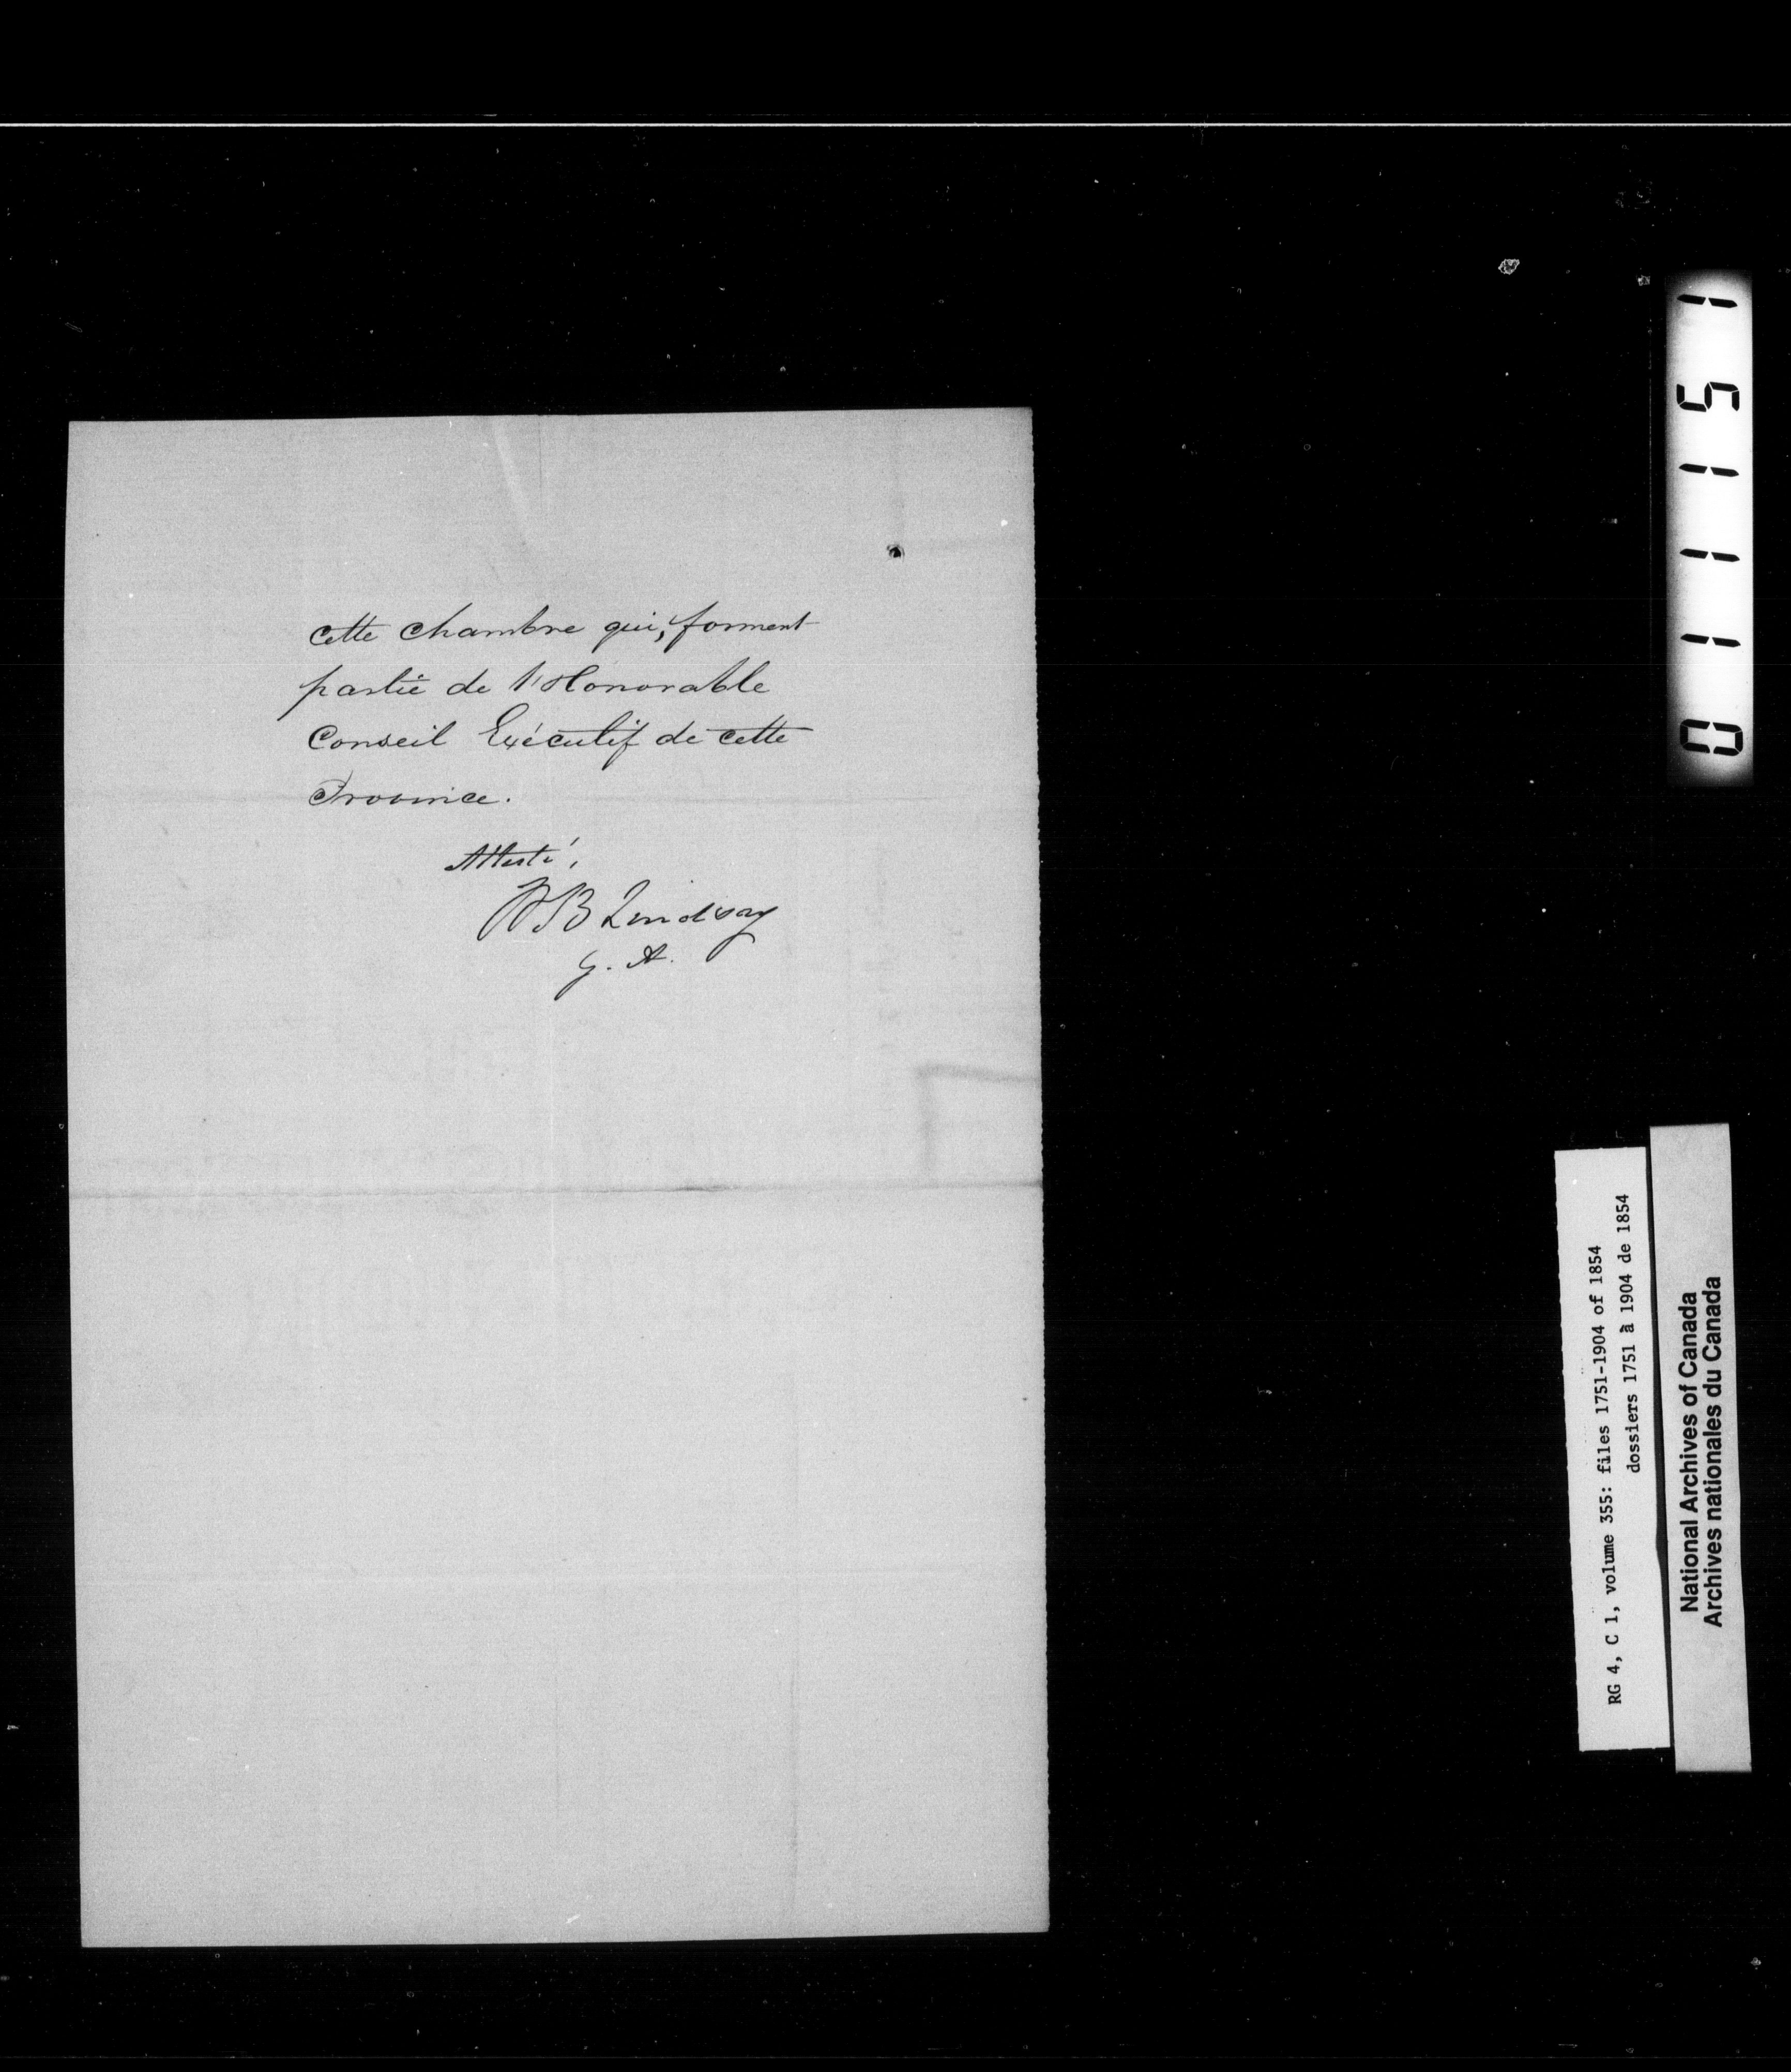 cette chambre qui, forment
partie de l'Honorable
Conseil Exécutif de cette
Province.
Attesté,
WB Lindsay
G. A.
011151
RG 4, C 1, volume 355: files 1751-1904 of 1854
dossiers 1751 à 1904 de 1854
National Archives of Canada
Archives nationales du Canada